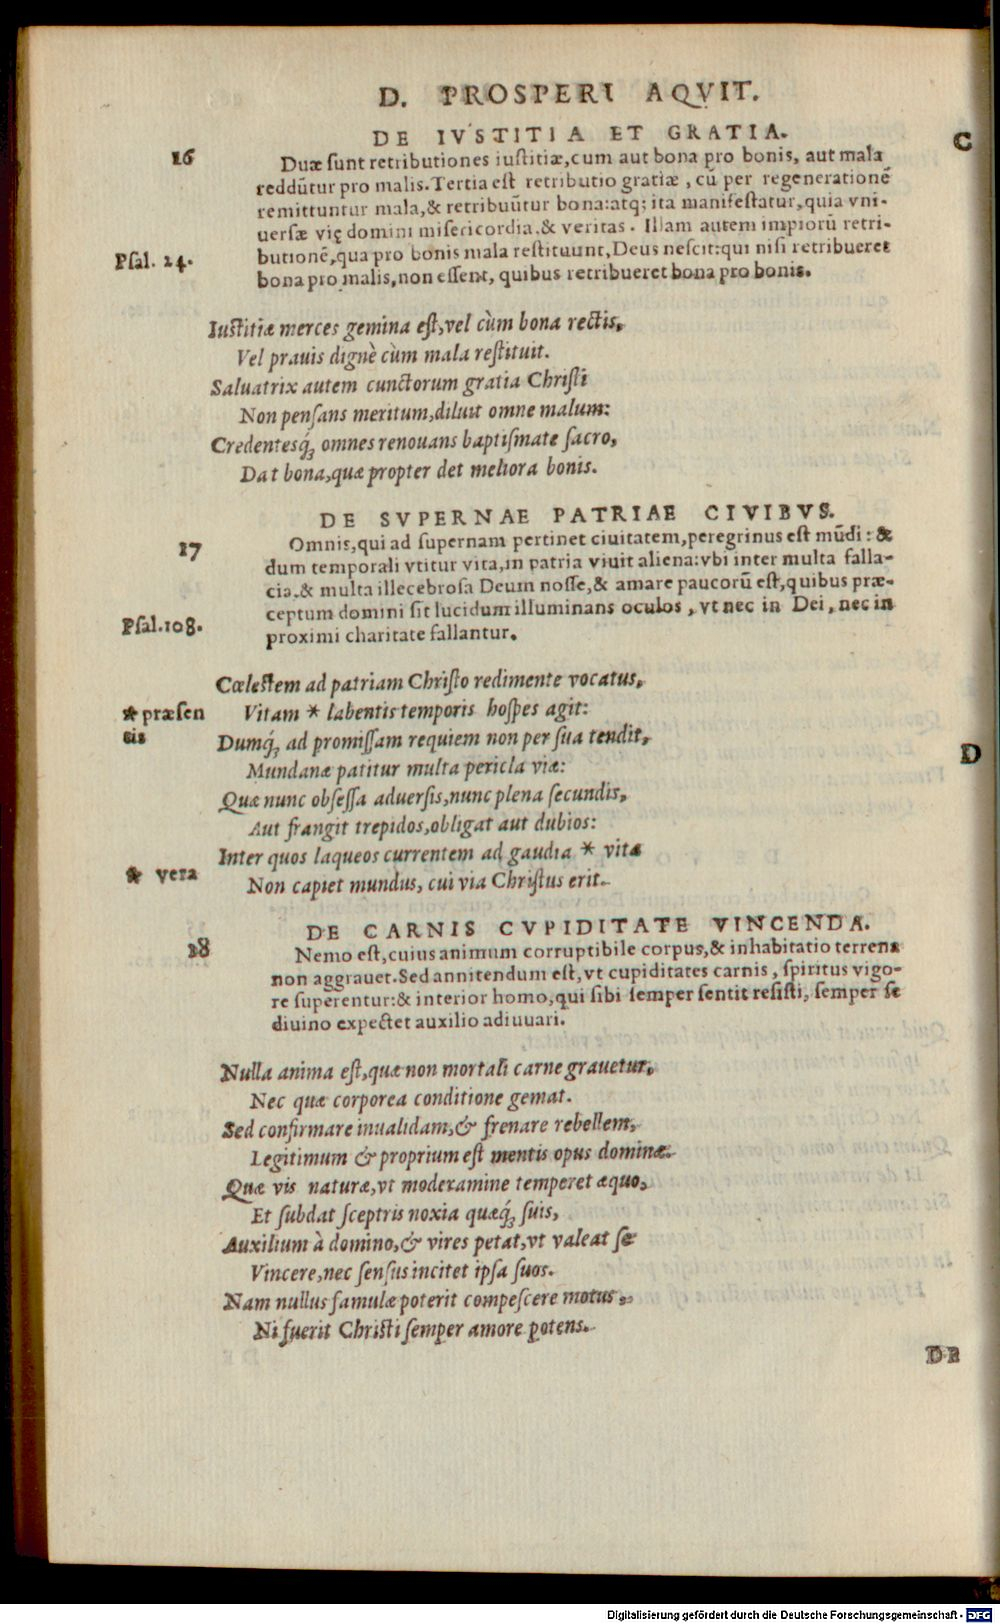 D. PROSPERI AQVIT.
DE IVSTITIA ET GRATIA.
C
16
Duæ sunt retributiones iustitiæ, cum aut bona pro bonis, aut mala
reddũtur pro malis. Tertia est retributio gratiæ, cũ per regenerationẽ
remittuntur mala, & retribuũtur bona: atq; ita manifestatur, quia vni-
uersæ vię domini misericordia, & veritas. Illam autem impiorũ retri-
Psal. 24.
butionẽ, qua pro bonis mala restituunt, Deus nescit: qui nisi retribueret
bona pro malis, non essent, quibus retribueret bona pro bonis.
Iustitiæ merces gemina est, vel cùm bona rectis,
Vel prauis dignè cùm mala restituit.
Saluatrix autem cunctorum gratia Christi
Non pensans meritum, diluit omne malum:
Credentesq́; omnes renouans baptismate sacro,
Dat bona, quæ propter det meliora bonis.
DE SVPERNAE PATRIAE CIVIBVS.
17
Omnis, qui ad supernam pertinet ciuitatem, peregrinus est mũdi: &
dum temporali vtitur vita, in patria viuit aliena: vbi inter multa falla-
cia, & multa illecebrosa Deum nosse, & amare paucorũ est, quibus præ-
ceptum domini sit lucidum illuminans oculos, vt nec in Dei, nec in
Psal. 108.
proximi charitate fallantur.
Cœlestem ad patriam Christo redimente vocatus,
* præsen
tis
Vitam * labentis temporis hospes agit:
Dumq́; ad promissam requiem non per sua tendit,
D
Mundanæ patitur multa pericla viæ:
Quæ nunc obsessa aduersis, nunc plena secundis,
Aut frangit trepidos, obligat aut dubios:
Inter quos laqueos currentem ad gaudia * vitæ
* vera
Non capiet mundus, cui via Christus erit.
DE CARNIS CVPIDITATE VINCENDA.
18
Nemo est, cuius animum corruptibile corpus, & inhabitatio terrena
non aggrauet. Sed annitendum est, vt cupiditates carnis, spiritus vigo-
re superentur: & interior homo, qui sibi semper sentit resisti, semper se
diuino expectet auxilio adiuuari.
Nulla anima est, quæ non mortali carne grauetur,
Nec quæ corporea conditione gemat.
Sed confirmare inualidam, & frenare rebellem,
Legitimum & proprium est mentis opus dominæ.
Quæ vis naturæ, vt moderamine temperet æquo,
Et subdat sceptris noxia quæq́; suis,
Auxilium à domino, & vires petat, vt valeat se
Vincere, nec sensus incitet ipsa suos.
Nam nullus famulæ poterit compescere motus,
Ni fuerit Christi semper amore potens.
DE
Digitalisierung gefördert durch die Deutsche Forschungsgemeinschaft - DFG